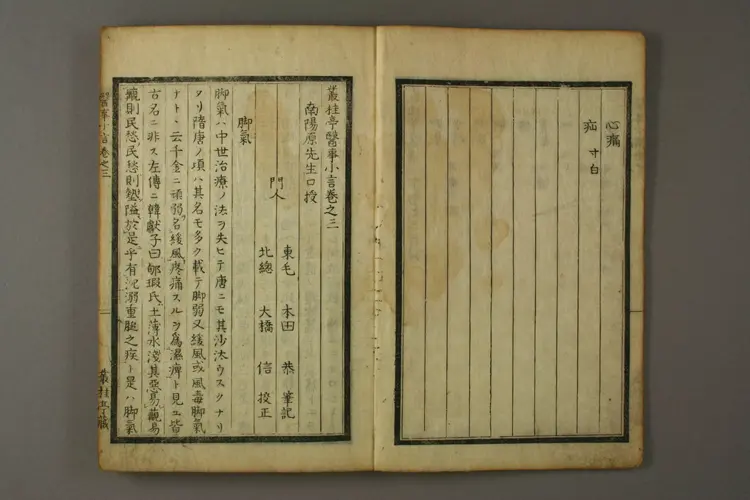 心痛
疝 寸白
叢桂亭醫事小言卷之三
南陽原先生口授
門人
東毛 本田 恭 筆記
北總 大橋 信 挍正
脚氣
脚氣ハ中世治療ノ法ヲ失ヒテ唐ニモ其沙汰ウスクナリ
タリ隋唐ノ頃ハ其名モ多ク載テ脚弱又緩風或風毒脚氣
ナト丶云千金ニ頑弱名緩風疼痛スルヲ爲濕痺ト見ユ皆
古名ニ非ス左傳ニ韓獻子曰郇瑕氏土薄水淺其惡易覯易
覯則民愁民愁則墊隘於是乎有沉溺重膇之疾ト是ハ脚氣
醫事小言卷之三
叢桂亭藏